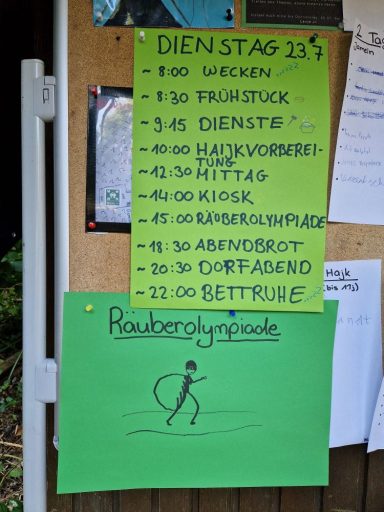 DIENSTAG 23.7
~ 8:00 WECKEN
~ 8:30 FRÜHSTÜCK
~ 9:15 DIENSTE
~ 10:00 HAIJKVORBEREI-
TUNG
~ 12:30 MITTAG
~ 14:00 KIOSK
~ 15:00 RÄUBEROLYMPIADE
~ 18:30 ABENDBROT
~ 20:30 DORFABEND
~ 22:00 BETTRUHE
Räuberolympiade
2 Ta
Hajk
(bis 11j)